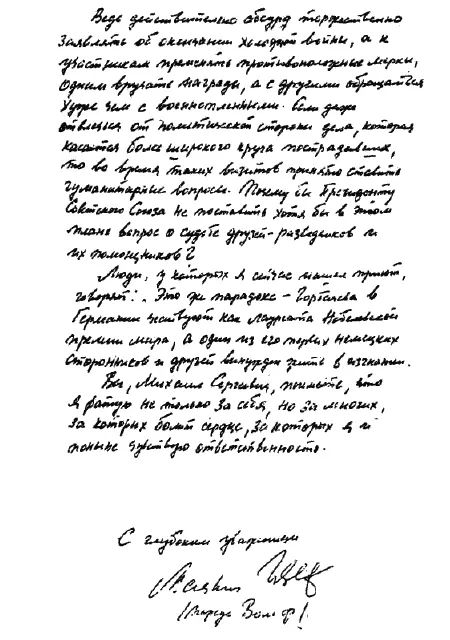 Ведь действительно абсурд торжественно
заявлять об окончании холодной войны, а к
участникам применять противоположные мерки,
одним вручать награды, а с другими обращаться
хуже чем с военнопленными. Если даже
отвлечься от политической стороны дела, которая
касается более широкого круга пострадавших,
то во время таких визитов принято ставить
гуманитарные вопросы. Почему бы Президенту
Советского Союза не поставить хотя бы в этом
плане вопрос о судьбе друзей-разведчиков и
их помощников?
Люди, у которых я сейчас нашел приют,
говорят: Это же парадокс - Горбачева в
Германии чествуют как Лауреата Нобелевской
премии мира, а один из его первых немецких
сторонников и друзей вынужден жить в изгнании.
Вы, Михаил Сергеевич, поймете, что
я ратую не только за себя, но за многих,
за которых болит сердце, за которых я и
поныне чувствую ответственность.
С глубоким уважением
/Маркус Вольф/